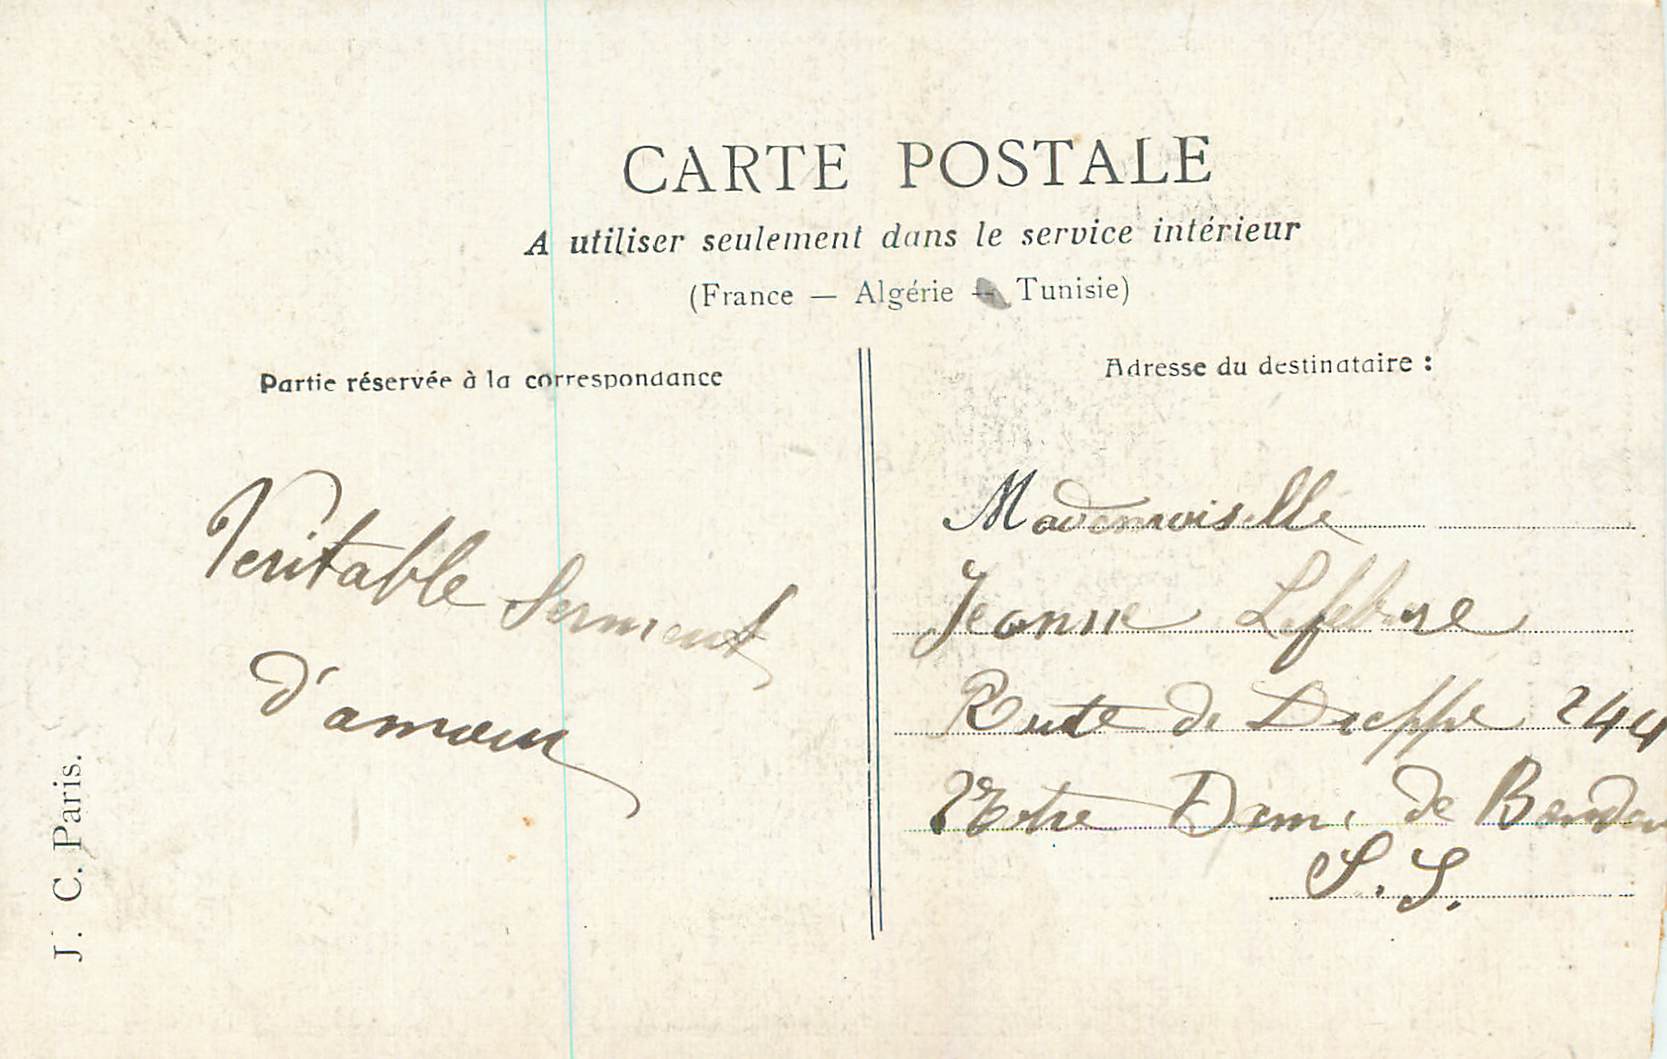 CARTE POSTALE
A utiliser seulement dans le service intérieur
(France — Algérie — Tunisie)
Partie réservée à la correspondance
Adresse du destinataire :
Veritable Serment
d'amour
Mademoiselle
Jeanne Lefebvre
Route de Dieppe 244
Notre Dame de Bondev
S. I.
J. C. Paris.